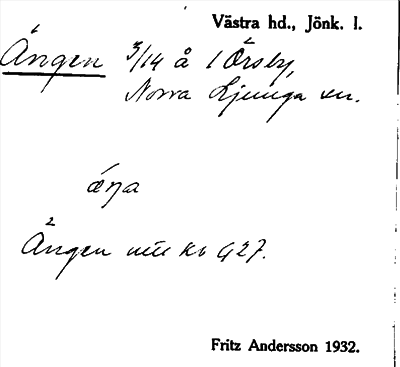 Västra hd., Jönk. l.
Ängen 3/14 å 1 Örsby,
Norra Ljunga sn.
æŋa
Ängen mtl kb G27.
Fritz Andersson 1932.